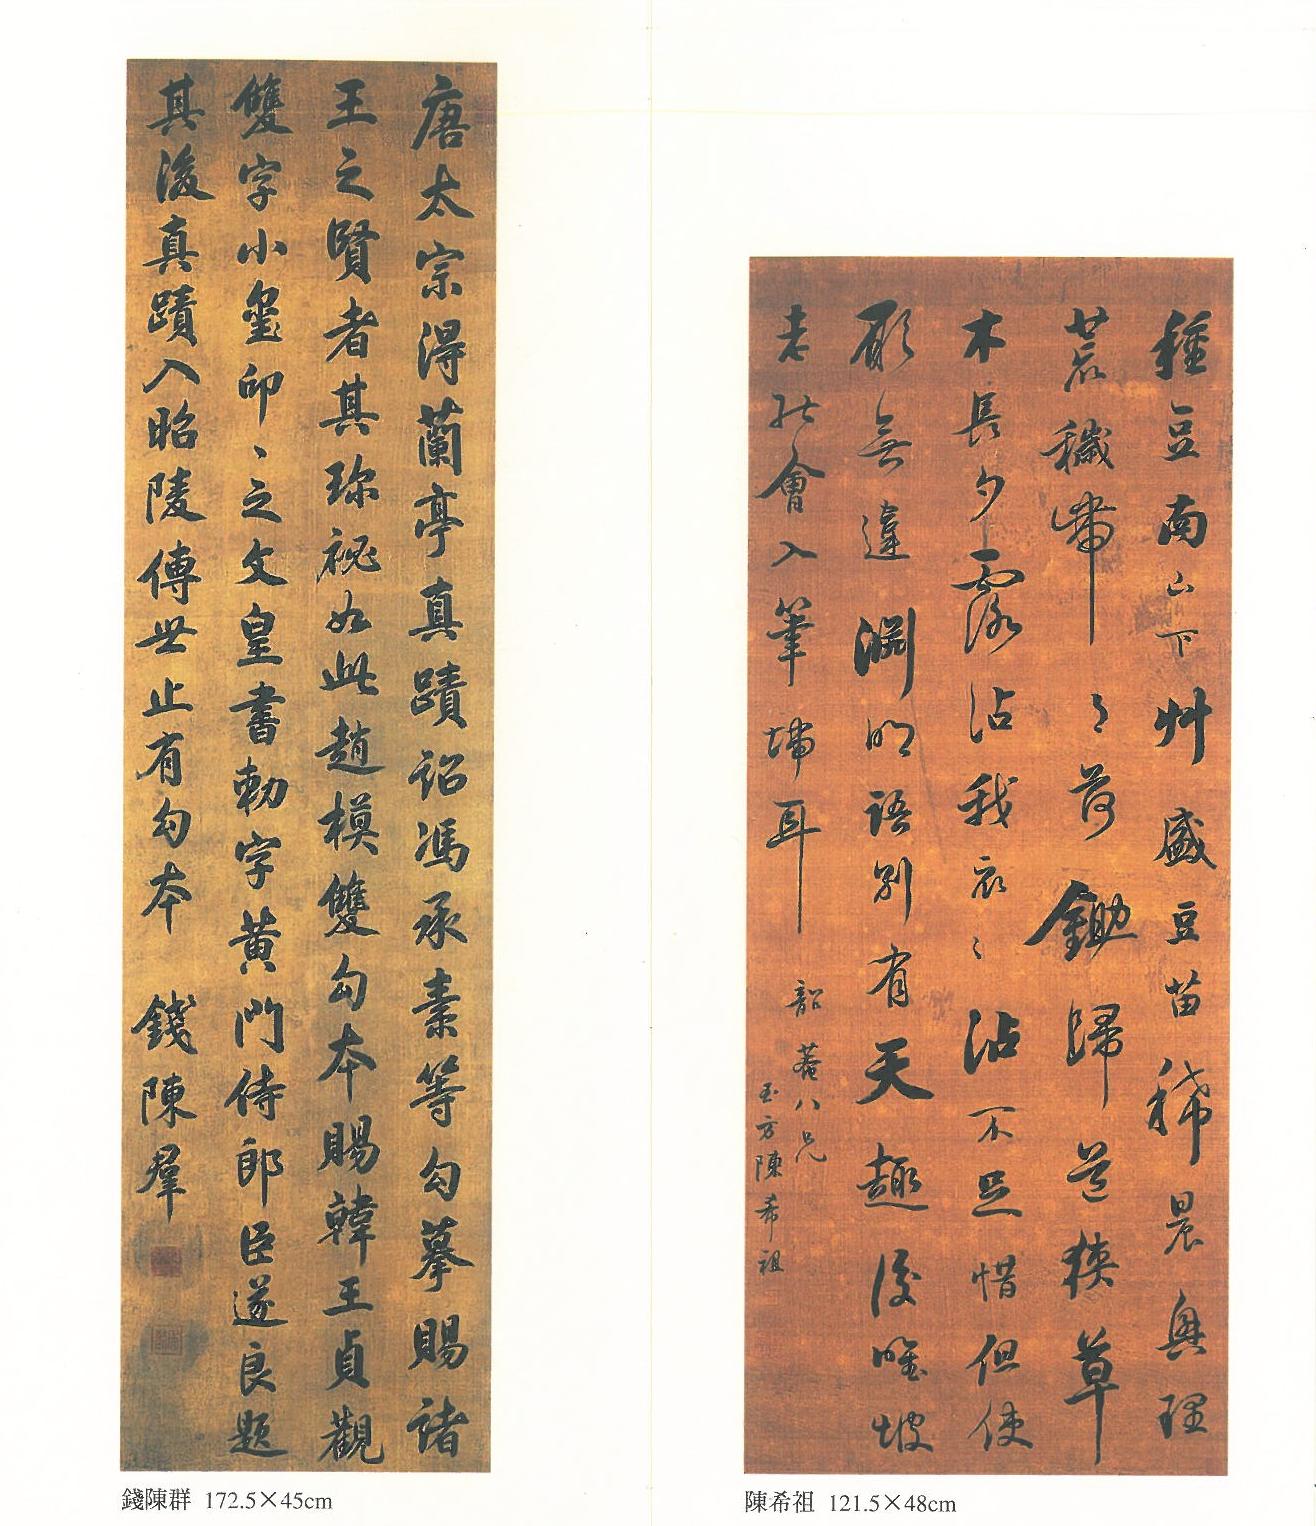 種豆南山下艸盛豆苗稀晨興理
荒穢帶月荷鋤歸道狹草
木長夕露沾我衣〻沾不足惜但使
願無違淵明語別有天趣後唯坡
老能會入筆端耳
韶菴八兄
玉方陳希祖
陳希祖 121.5×48cm
唐太宗得蘭亭真蹟詔馮承素等勾摹賜諸
王之賢者其珎祕如此趙模雙勾本賜韓王貞觀
雙字小璽印〻之文皇書勅字黄門侍郎臣遂良題
其後真蹟入昭陵傳世止有勾本 錢陳羣
錢陳群 172.5×45cm